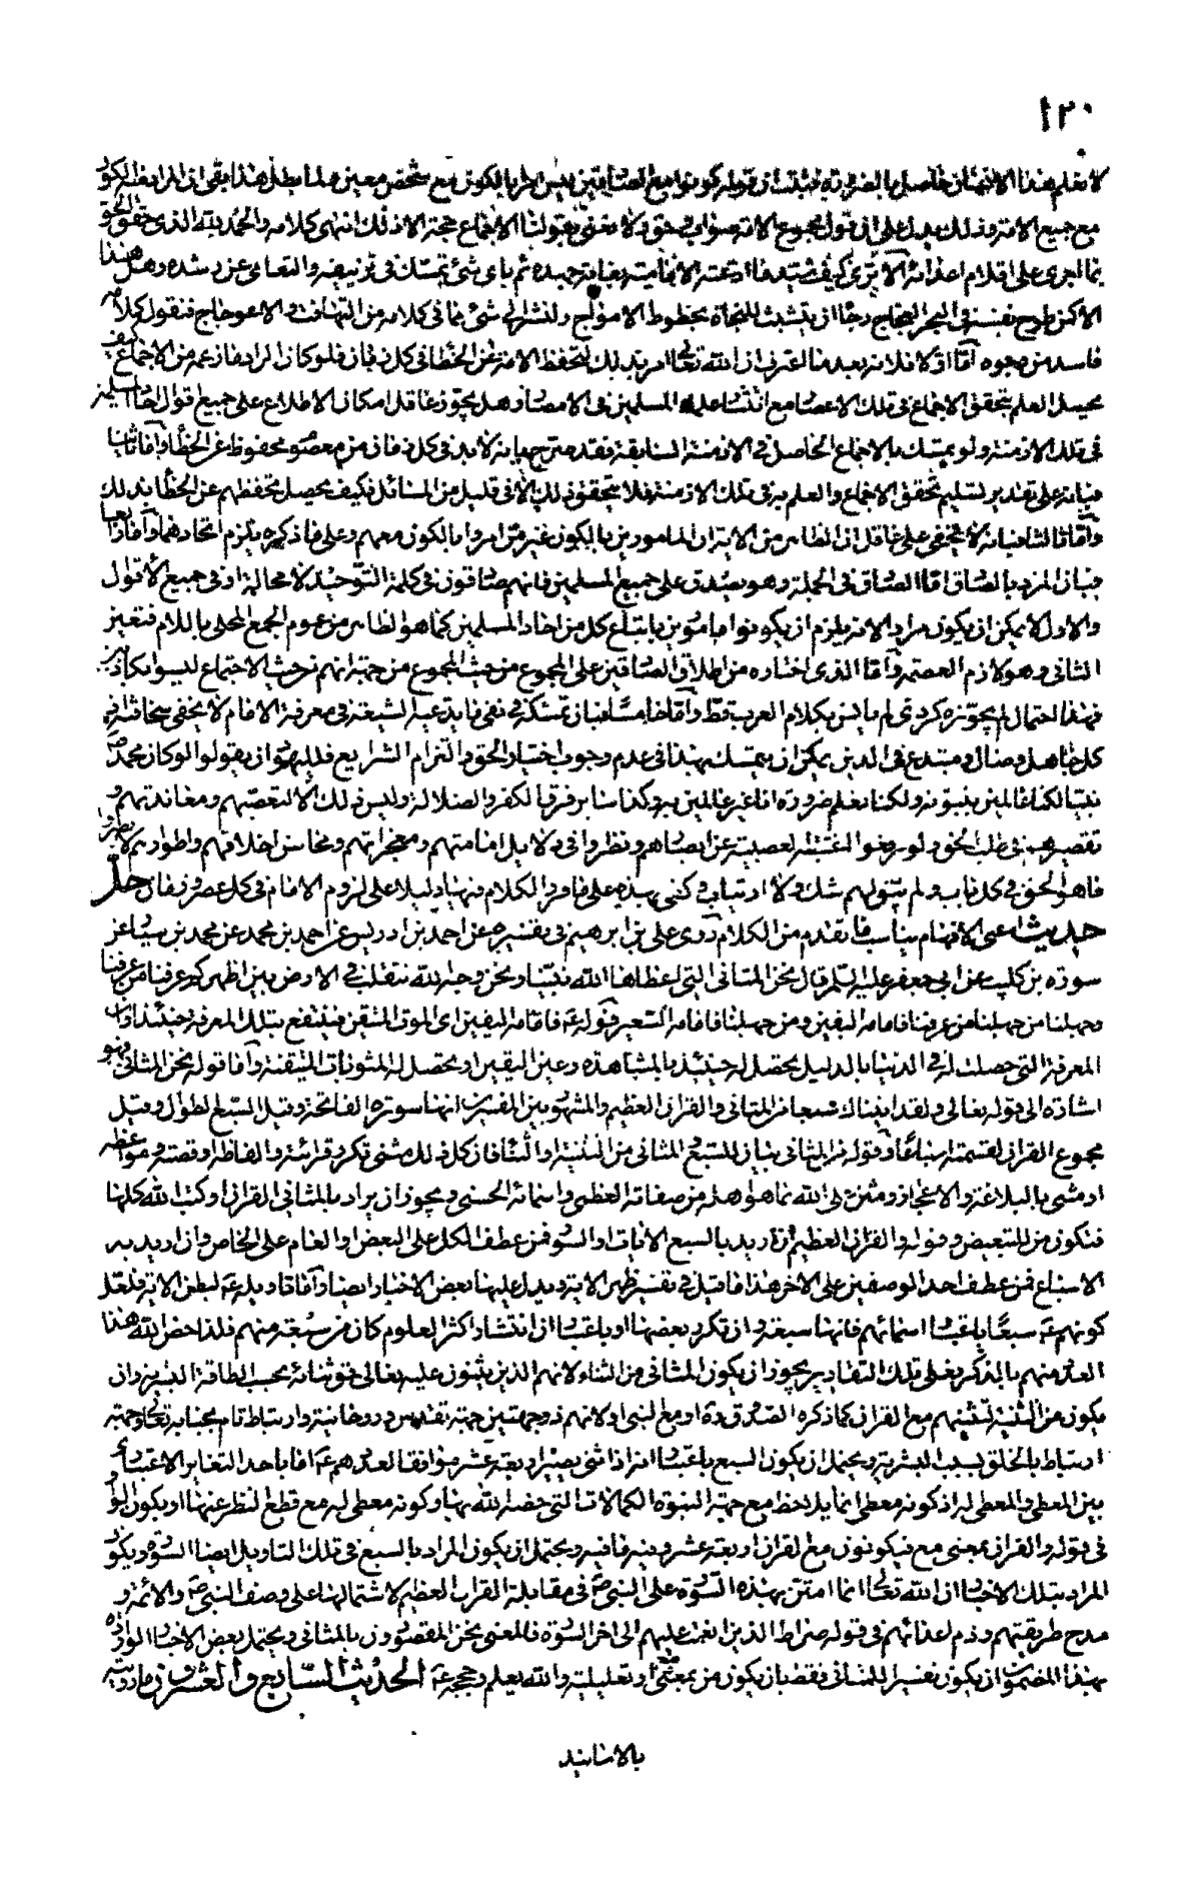 ١٣٠
لا نعلم هذا الانسان حاصل بالضرورة فثبت ان قوله كونوا مع الصادقين ليس امرا بالكون مع شخص معين ولما بطل هذا بقي ان المراد منه الكون
مع جميع الامة وذلك يدل على ان قول مجموع الامة صواب وحق ولا نعني بقولنا الاجماع حجة الا ذلك انتهى كلامه والحمد لله الذي حقق الحق
بما اجرى على اقلام اعدائه الا ترى كيف شيد ما ادعته الامامية بغاية جهده ثم باي شئ تمسك في تزييفه والتعامي عن رشده وهل هذا
الا كمن طرح نفسه في البحر العجاج رجاء ان يتشبث للنجاة بخطوط الامواج ولنشر الى شئ مما في كلامه من التهافت والاعوجاج فنقول كلامه
فاسد من وجوه اما اولا فلانه بعد ما اعترف ان الله تعالى امر بذلك لتحفظ الامة عن الخطأ في كل زمان فلو كان المراد ما زعمه من الاجماع كيف
يحصل العلم بتحقق الاجماع في تلك الاعصار مع انتشار علماء المسلمين في الامصار وهل يجوز عاقل امكان الاطلاع على جميع اقوال احاد المسلمين
في تلك الازمنة ولو تمسك بالاجماع الحاصل في الازمنة السابقة فقد صرح بانه لا بد في كل زمان من معصوم محفوظ عن الخطأ واما ثانيا
فبانه على تقدير تسليم تحقق الاجماع والعلم به في تلك الازمنة فلا يتحقق ذلك الا في قليل من المسائل فكيف يحصل تحفظهم عن الخطأ بذلك
واما ثالثا فبانه لا يخفى على عاقل ان الظاهر من الاية ان المامورين بالكون غير من امروا بالكون معهم وعلى ما ذكره يلزم اتحادهما واما رابعا
فبان المراد بالصادق اما الصادق في الجملة وهو يصدق على جميع المسلمين فانهم صادقون في كلمة التوحيد لا محالة او في جميع الاقوال
والاول لا يمكن ان يكون مرادا لانه يلزم ان يكونوا مامورين باتباع كل من احاد المسلمين كما هو الظاهر من عموم الجمع المحلى باللام فتعين
الثاني وهو لازم العصمة واما الذي اختاره من اطلاق الصادقين على المجموع من حيث المجموع من جهة انهم من حيث الاجتماع ليسوا بكاذبين
فهذا احتمال لا يجوزه كردي لم يانس بكلام العرب قط واما خامسا فبان تمسكه في نفي ما يدعيه الشيعة في معرفة الامام لا يخفى سخافته اذ
كل جاهل وضال ومبتدع في الدين يمكن ان يتمسك بهذا في عدم وجوب اختيار الحق والتزام الشرايع فلليهود ان يقولوا لو كان محمد ص
نبيا لكنا عالمين بنبوته ولكنا نعلم ضرورة انا غير عالمين به وكذا سائر فرق الكفر والضلالة وليس ذلك الا لتعصبهم ومعاندتهم و
تقصيرهم في طلب الحق ولو رفعوا اغشية العصبية عن ابصارهم ونظروا في دلايل امامتهم ومعجزاتهم ومحاسن اخلاقهم واطوارهم لابصروا
ما هو الحق في كل باب ولم يبق لهم شك ولا ارتياب وكفى بهذه على ما قرر الكلام فيها دليلا على لزوم الامام في كل عصر وزمان حل
حديث اعمى الافهام يناسب ما تقدم من الكلام روى علي بن ابرهيم في تفسيره عن احمد بن ادريس عن احمد بن محمد عن محمد بن سيار عن
سورة بن كليب عن ابي جعفر عليه السلم قال نحن المثاني التي اعطاها الله نبينا ونحن وجه الله نتقلب في الارض بين اظهركم عرفنا من عرفنا
وجهلنا من جهلنا من عرفنا فامامه اليقين ومن جهلنا فامامه السعير قوله ع فامامه اليقين اي الموت المتيقن فينتفع بتلك المعرفة حينئذ او ان
المعرفة التي حصلت له في الدنيا بالدليل يحصل له حينئذ بالمشاهدة وعين اليقين او يحصل له المثوبات المتيقنة واما قوله نحن المثاني فهو
اشارة الى قوله تعالى ولقد اتيناك سبعا من المثاني والقران العظيم والمشهور بين المفسرين انها سورة الفاتحة وقيل السبع الطوال وقيل
مجموع القران لقسمته اسباعا وقوله من المثاني بيان للسبع والمثاني من التثنية او الثناء فان كل ذلك مثنى تكرر قرائته والفاظه او قصصه ومواعظه
او مثنى بالبلاغة والاعجاز ومثن على الله بما هو اهله من صفاته العظمى واسمائه الحسنى ويجوز ان يراد بالمثاني القران او كتب الله كلها
فتكون من للتبعيض وقوله والقران العظيم ان اريد بالسبع الايات او السور فمن عطف الكل على البعض او العام على الخاص وان اريد به
الاسباع فمن عطف احد الوصفين على الاخر هذا ما قيل في تفسير ظهر الاية ويدل عليها بعض الاخبار ايضا واما تاويله ع لبطن الاية فلعل
كونهم ع سبعا باعتبار اسمائهم فانها سبعة وان تكرر بعضها او باعتبار ان انتشار اكثر العلوم كان من سبعة منهم فلذا خص الله هذا
العدد منهم بالذكر فعلى تلك التقادير يجوز ان يكون المثاني من الثناء لانهم الذين يثنون عليه تعالى حق ثنائه بحسب الطاقة البشرية وان
يكون من التثنية لتثنيتهم مع القران كما ذكره الصدوق ره او مع النبي او لانهم ذو جهتين جهة تقدس وروحانية وارتباط تام بجنابه تعالى وجهة
ارتباط بالخلق بسبب البشرية ويحتمل ان يكون السبع باعتبار انه اذا ثنى يصير اربعة عشر موافقا لعددهم ع اما باحد التغاير الاعتباري
بين المعطى والمعطى له اذ كونه معطى انما يلاحظ مع جهة النبوة والكمالات التي خصه الله بها وكونه معطى له مع قطع النظر عنها او يكون الواو
في قوله والقران بمعنى مع فيكونون مع القران اربعة عشر وفيه ما فيه ويحتمل ان يكون المراد بالسبع في تلك التاويل ايضا السورة ويكون
المراد بتلك الاخبار ان الله تعالى انما امتن بهذه السورة على النبي ص في مقابلة القران العظيم لاشتمالها على وصف النبي ص والائمة و
مدح طريقتهم وذم اعدائهم في قوله صراط الذين انعمت عليهم الى اخر السورة فالمعنى نحن المقصودون بالمثاني ويحتمل بعض الاخبار الواردة
بهذا المضمون ان يكون تفسيرا للمثاني فقط بان يكون من بمعنى مع او تعليلية والله يعلم وحججه ع الحديث السابع والعشرون ما رويته
بالاسانيد